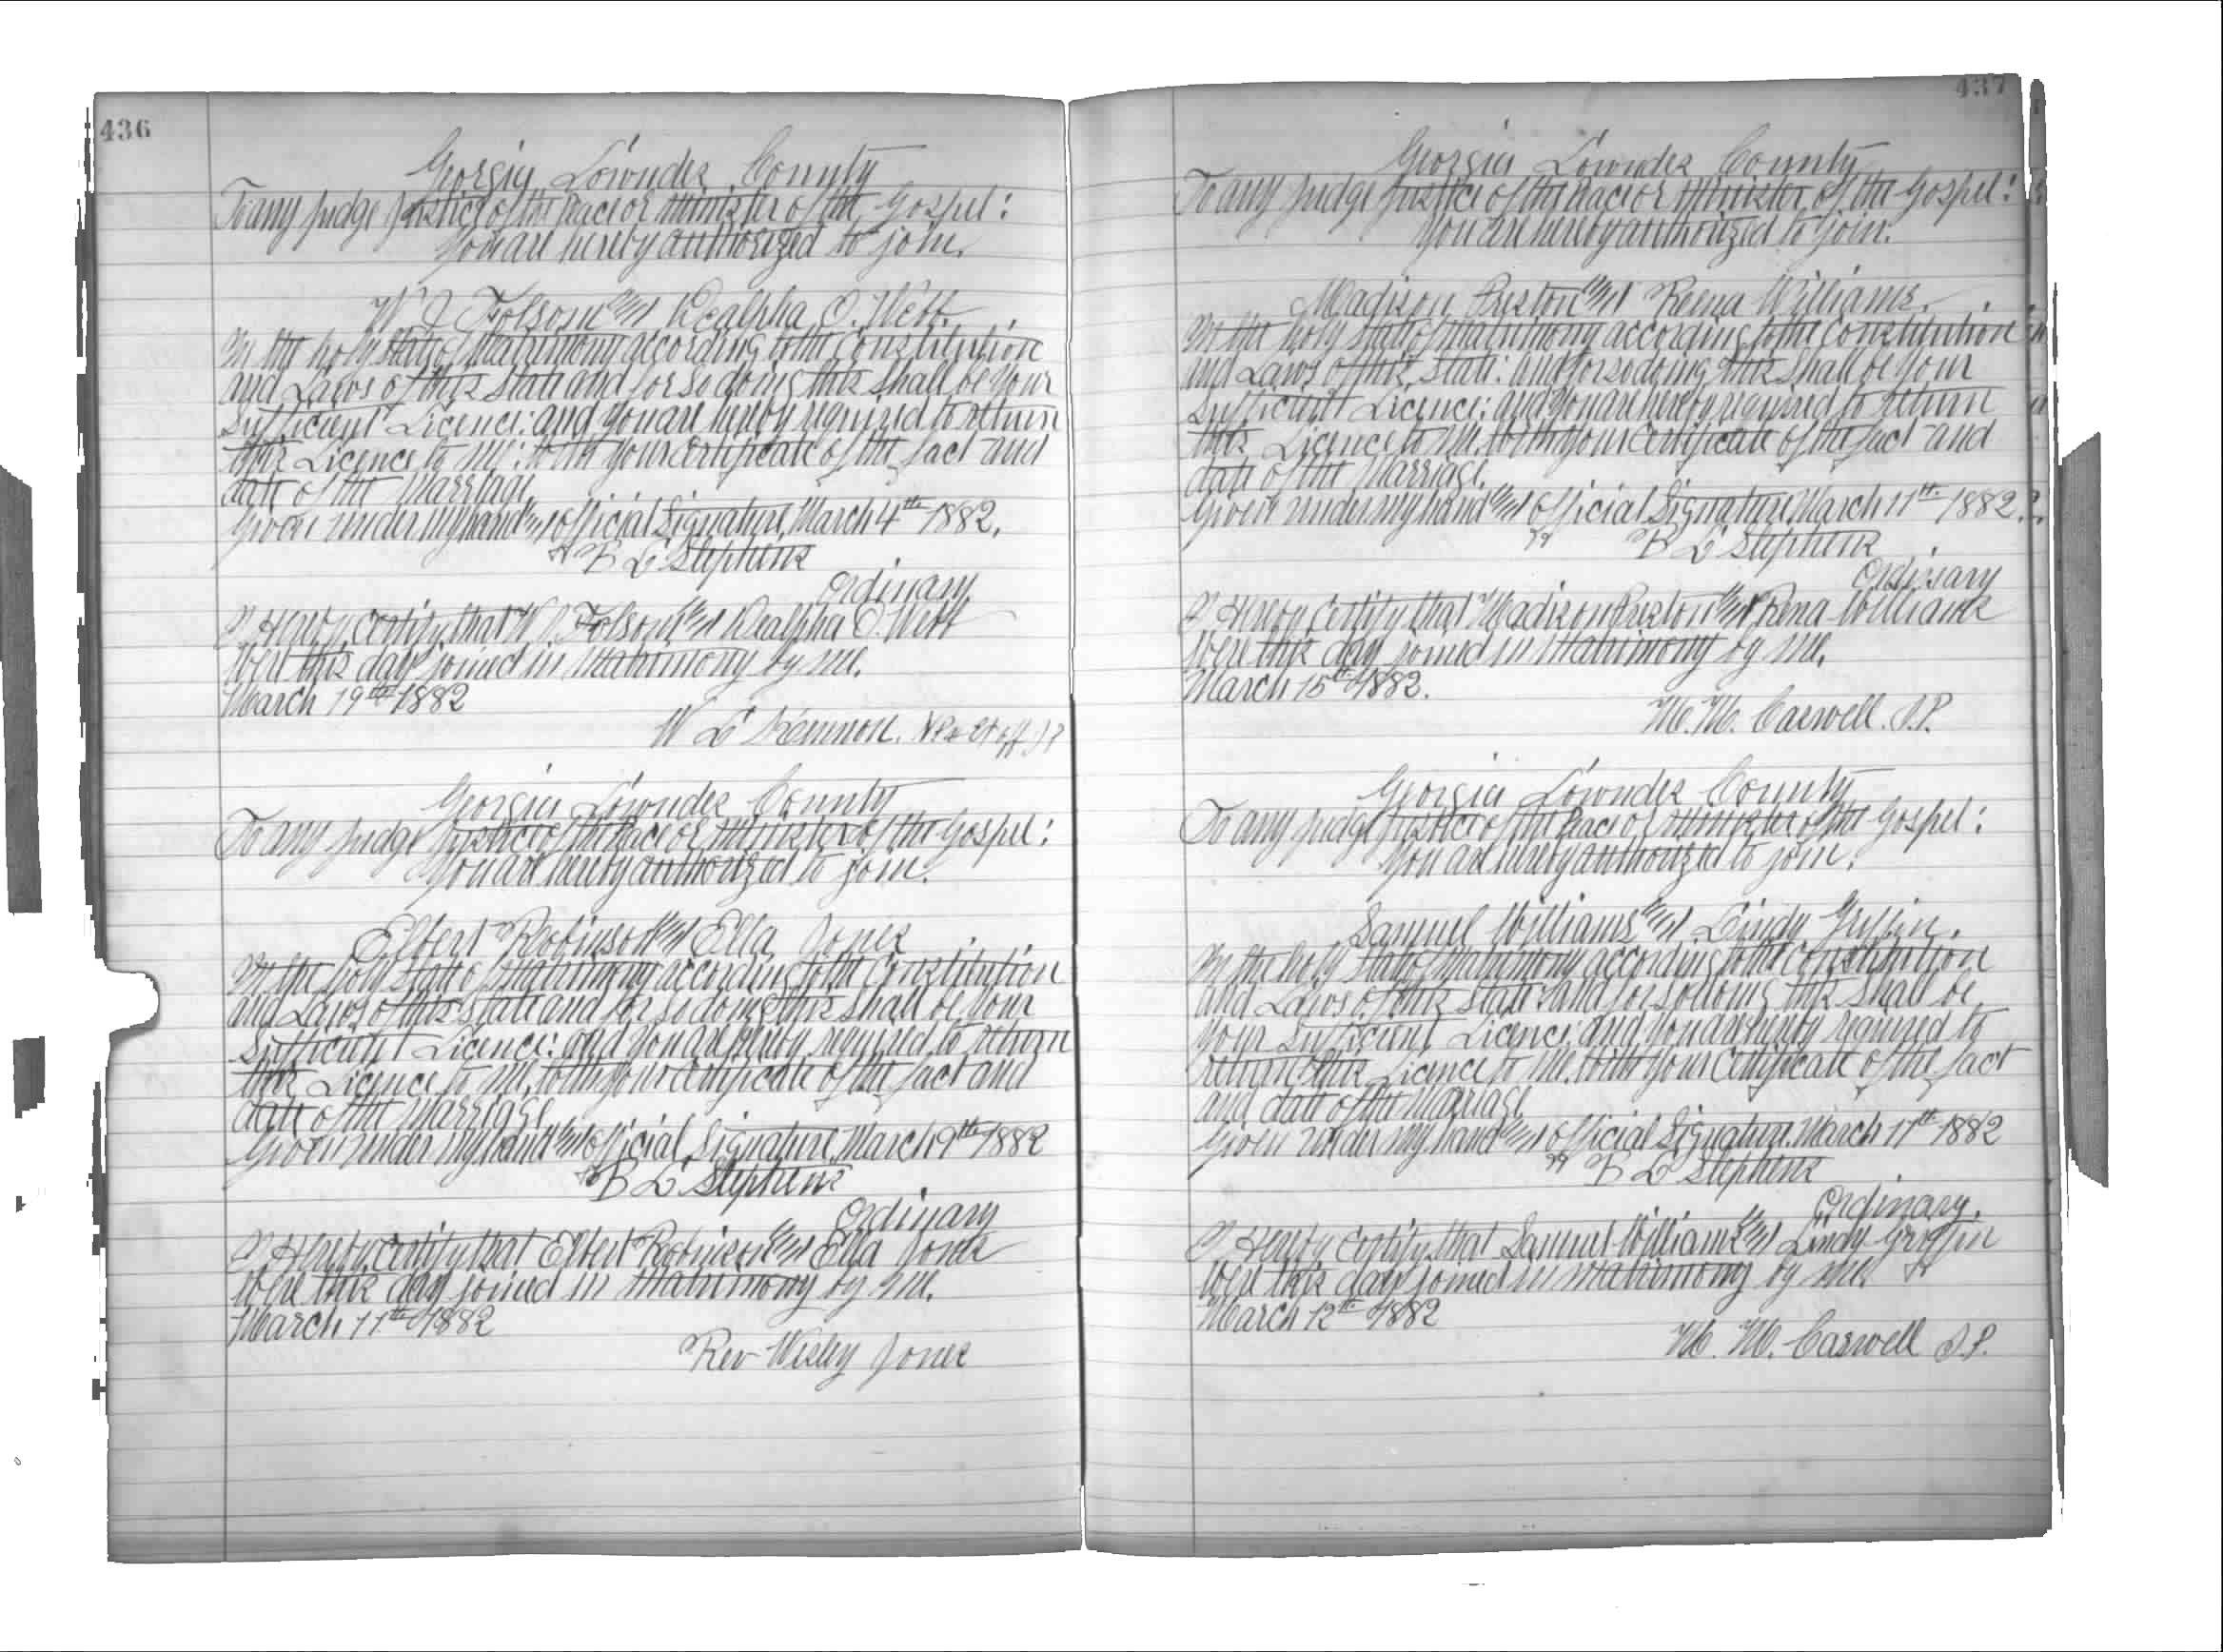 436
Georgia Lowndes County
To any Judge Justice of the Peace or Minister of the Gospel:
You are hereby authorized to join.
W J Folsom and Dealpha O. Webb
In the holy state of Matrimony according to the Constitution
and Laws of this State and for so doing this shall be Your
Sufficient Licence: and You are hereby required to return
this Licence to Me: with Your Certificate of the fact and
date of the Marriage
Given under my hand and official Signature, March 4th 1882.
B L Stephens
Ordinary
I Hereby Certify that W J. Folsom and Dealpha O. Webb
Were this day joined in Matrimony by Me.
March 19th 1882
W L Kennon.
Georgia Lowndes County
To any Judge Justice of the Peace or Minister of the Gospel:
You are hereby authorized to join.
Elbert Robinson and Ella Jones
In the holy state of Matrimony according to the Constitution
and Laws of this State and for so doing this shall be Your
Sufficient Licence: and You are hereby required to return
this Licence to Me, with Your Certificate of the fact and
date of the Marriage
Given under my hand and official Signature, March 9th 1882
B L Stephens
Ordinary
I Hereby Certify that Elbert Robinson and Ella Jones
Were this day joined in Matrimony by Me.
March 11th 1882
Rev Wesley Jones
437
Georgia Lowndes County
To any Judge Justice of the Peace or Minister of the Gospel:
You are hereby authorized to join.
Madison Preston and Rena Williams.
In the holy state of Matrimony according to the Constitution
and Laws of this State: and for so doing this shall be Your
Sufficient Licence: and You are hereby required to return
this Licence to Me. With Your Certificate of the fact and
date of the Marriage.
Given under my hand and official Signature March 11th 1882.
B L Stephens
Ordinary
I Hereby Certify that Madison Preston and Rena Williams
Were this day joined in Matrimony by Me.
March 15th 1882.
M. M. Caswell. J.P.
Georgia Lowndes County
To any Judge Justice of the Peace or Minister of the Gospel:
You are hereby authorized to join.
Samuel Williams and Lindy Griffin.
In the holy state of Matrimony according to the Constitution
and Laws of this State: and for so doing this shall be
Your Sufficient Licence: and You are hereby required to
return this Licence to Me. With Your Certificate of the fact
and date of the Marriage
Given under my hand and official Signature March 11th 1882
B L Stephens
Ordinary.
I Hereby Certify that Samuel Williams and Lindy Griffin
Were this day joined in Matrimony by Me
March 12th 1882
M. M. Caswell J.P.